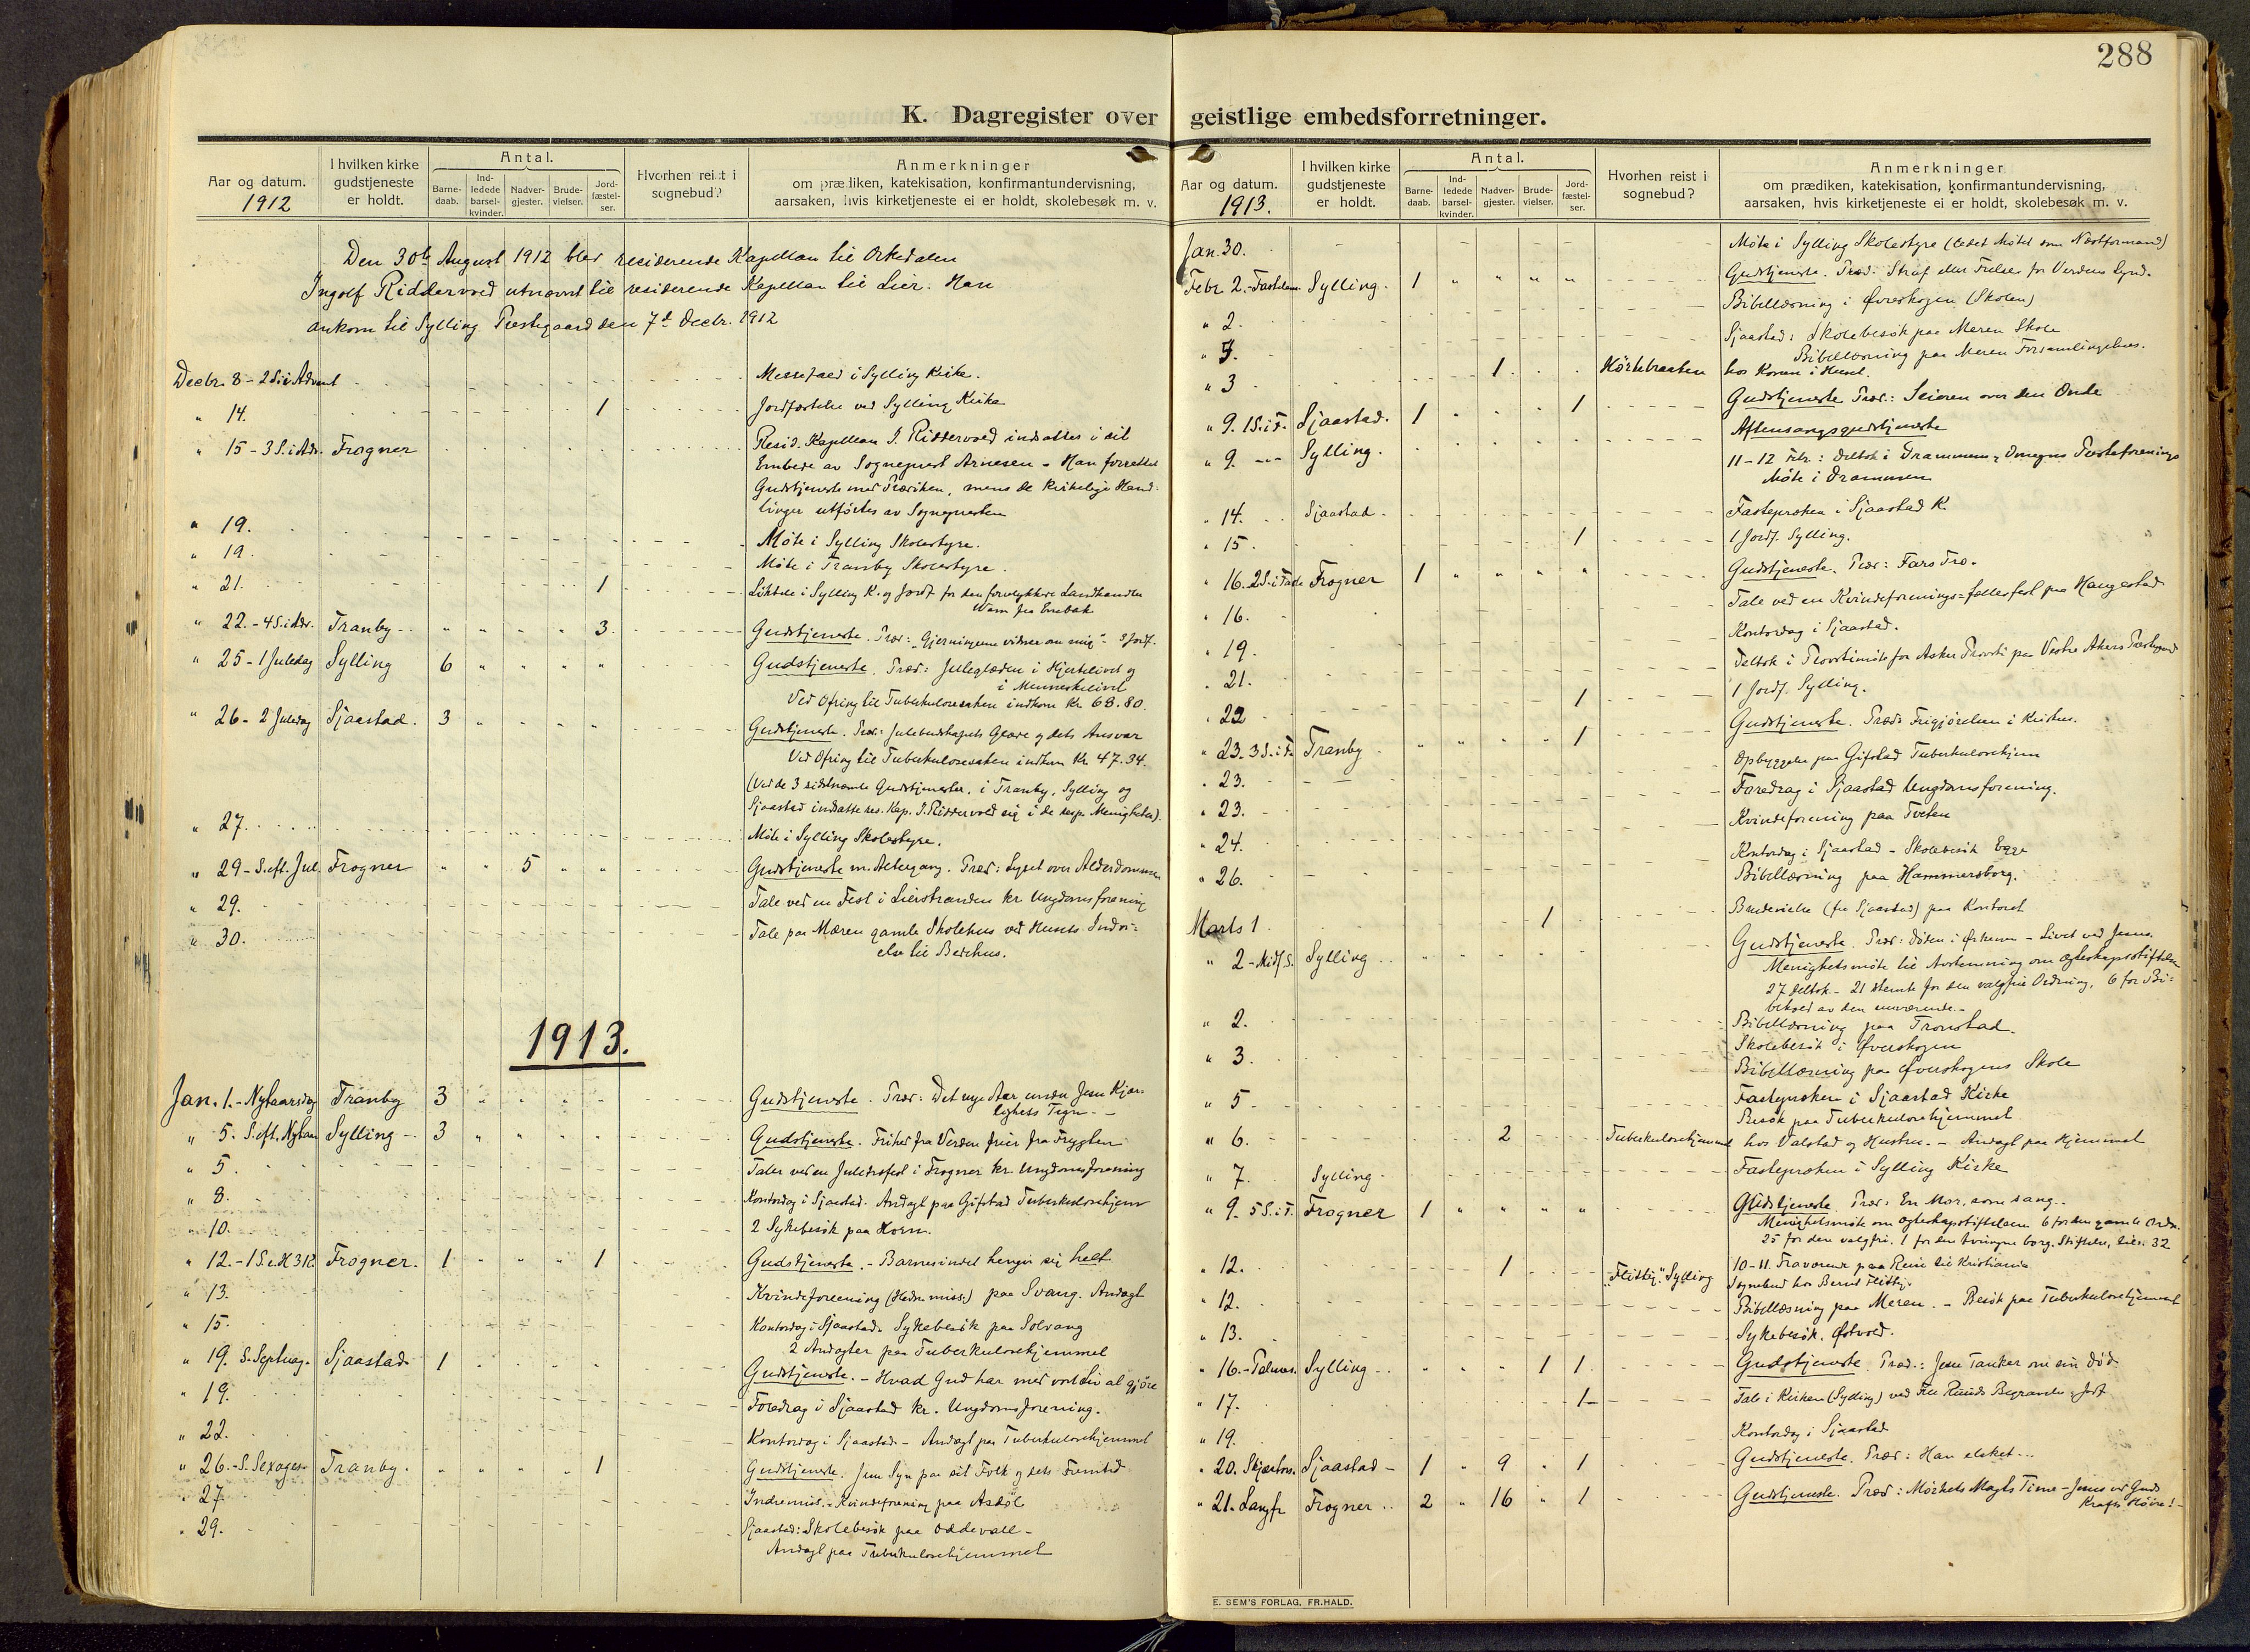 288
K. Dagregister over geistlige embedsforretninger.
Aar og datum.
1912
I hvilken kirke
gudstjeneste
er holdt.
Antal.
Barne-
daab.
Ind-
ledede
barsel-
kvinder.
Nadver-
gjester.
Brude-
vielser.
Jord-
fæstel-
ser.
Hvorhen reist i
sognebud?
Anmerkninger
om prædiken, katekisation, konfirmantundervisning,
aarsaken, hvis kirketjeneste ei er holdt, skolebesøk m. v.
Den 30te August 1912 blev residerende Kapellan til Orkedalen
Ingolf Riddervold utnævnt til residerende Kapellan til Lier. Han
ankom til Sylling Prestegaard den 7de Decbr. 1912
Decbr. 8 - 2 S. i Advent Messefald i Sylling Kirke.
" 14. 1 Jordfæstelse ved Sylling Kirke
" 15 - 3 S. i Adv. Frogner Resid. Kapellan I. Riddervold indsattes i sit
Embede av Sogneprest Arnesen - Han forrettet
Gudstjeneste med Prædiken, mens de kirkelige Hand-
linger utførtes av Sognepresten
" 19. Møte i Sylling Skolestyre.
" 19. Møte i Tranby Skolestyre.
" 21. 1 Liktale i Sylling K. og Jordf. for den forulykkede Landhandler
" 22. - 4 S. i Adv. Tranby " " " " 3 Gudstjeneste. Præd: "Gjerningerne vidner om mig" - 3 Jordf.
" 25 - 1 Juledag Sylling 6 " " " " Gudstjeneste. Præd: Juleglæden i Hjertelivet og
i Menneskelivet
Ved Ofring til Tuberkulosesaken indkom Kr. 68.80.
" 26 - 2 Juledag Sjaastad. 3 " " " " Gudstjeneste. Præd: Julebudskapets Glæde og dets Ansvar
Ved Ofring til Tuberkulosesaken indkom Kr. 47.34.
(Ved de 3 sidstnævnte Gudstjenester, i Tranby, Sylling og
Sjaastad indsatte res. Kap. I. Riddervold sig i de resp. Menigheter).
" 27. Møte i Sylling Skolestyre.
" 29 - S. eft. Jul. Frogner " " 5 " " Gudstjeneste m. Altergang. Præd: Lyset over Alderdommen
" 29. Tale ved en Fest i Lierstranden kr. Ungdomsforening
" 30. Tale paa Mæren gamle Skolehus ved Husets Indvi-
else til Bedehus.
1913.
Jan. 1. - Nytaarsdag Tranby 3 " " " " Gudstjeneste. Præd: Det nye Aar under Jesu Kjær-
lighets Tegn -
" 5. S. eft. Nytaar Sylling 3 " " " " Gudstjeneste. Frihet fra Verden frier fra Frygten
" 5. Taler ved en Juletrefest i Frogner kr. Ungdomsforening
" 8. Kontordag i Sjaastad. Andagt paa Gifstad Tuberkulosehjem
" 10. 2 Sykebesøk paa Horn.
" 12. - 1 S. e. H3K Frogner. 1 " " " 1 Gudstjeneste. - Barnesindet hengir sig helt
" 13. Kvindeforening (Hedn. miss.) paa Svang. Andagt
" 15. Kontordag i Sjaastad. Sykebesøk paa Solvang
2 Andagter paa Tuberkulosehjemmet
" 19. S. Septuag. Sjaastad 1 Gudstjeneste. - Hvad Gud har med vort Liv at gjøre
" 19. Foredrag i Sjaastad kr. Ungdomsforening.
" 22. Kontordag i Sjaastad - Andagt paa Tuberkulosehjemmet
" 26. - S. Sexages. Tranby. " " " " 1 Gudstjeneste. Jesu Syn paa sit Folk og dets Fremtid
" 27 Indremis. - Kvindeforening paa Asdøl
" 29. Sjaastad: Skolebesøk paa Oddevall -
Andagt paa Tuberkulosehjemmet
Aar og datum.
1913.
I hvilken kirke
gudstjeneste
er holdt.
Antal.
Barne-
daab.
Ind-
ledede
barsel-
kvinder.
Nadver-
gjester.
Brude-
vielser.
Jord-
fæstel-
ser.
Hvorhen reist i
sognebud?
Anmerkninger
om prædiken, katekisation, konfirmantundervisning,
aarsaken, hvis kirketjeneste ei er holdt, skolebesøk m. v.
Jan. 30. Møte i Sylling Skolestyre (ledet Møtet som Næstformand)
Febr 2. - Fastelavn Sylling. 1 " " " " Gudstjeneste. Præd. Straf eller Frelse for Verdens Synd.
" 2. Bibellæsning i Øverskogen (Skolen)
" 3. Sjaastad: Skolebesøk paa Meren Skole
Bibellæsning paa Meren Forsamlingshus.
" 3 1 Hørtebraaten hos Konen i Huset.
" 9. 1 S. i F. Sjaastad. 1 " " " 1 Gudstjeneste Præd.: Seieren over den Onde
" 9. Sylling. Aftensangsgudstjeneste
11-12 Febr.: deltok i Drammens og Omegns Presteforenings
Møte i Drammen
" 14. Sjaastad Fasteprøken i Sjaastad K.
" 15. 1 1 Jordf. Sylling.
" 16. 2 S. i Faste Frogner 1 " " " " Gudstjeneste. Præd: Fars Tro.
" 16. Tale ved en Kvindeforenings-fællesfest paa Haugestad
" 19. Kontordag i Sjaastad.
" 21. Deltok i Provstimøte for Asker Provsti paa Vestre Akers Prestegaard
" 22 1 1 Jordf. Sylling.
" 23. 3 S. i F. Tranby " " " " 1 Gudstjeneste. Præd: Frigjørelsen i Kristus.
" 23. Opbyggelse paa Gifstad Tuberkulosehjem
" 23. Foredrag i Sjaastad Ungdomsforening.
" 24. Kvindeforening paa Tveten
" 26. Kontordag i Sjaastad - Skolebesøk Egge
Bibellæsning paa Hammersborg.
Marts 1 1 Brudevielse (fra Sjaastad) paa Kontoret
" 2 - Midf. S. Sylling Gudstjeneste. Præd: Døden i Ørkenen - Livet ved Jesus.
Menighetsmøte til Avstemning om Egteskapsstiftelsen
27 deltok. - 21 stemte for den valgfrie Ordning, 6 for Bi-
behold av den nuværende. -
" 2. Bibellæsning paa Tronstad.
" 3. Skolebesøk i Øverskogen
Bibellæsning paa Øverskogens Skole
" 5 Fasteprøken i Sjaastad Kirke
Besøk paa Tuberkulosehjemmet
" 6. 2 Tuberkulosehjemmet hos Valstad og Hustru. - Andagt paa Hjemmet
" 7. Sylling Fasteprøken i Sylling Kirke
" 9. 5 S. i F. Frogner 1 " " " " Gudstjeneste Præd. En Mor, som sang.
Menighetsmøte om Egteskapsstiftelsen 6 for den gamle Ordn.
25 for den valgfri. 1 for den tvungne borg. Stiftelse, tils. 32
10-11. Fraværende paa Reise til Kristiania
" 12. 1 "Flitbj." Sylling Sognebud hos Bernt Flitbj.
" 12. Bibellæsning paa Meren. - Besøk paa Tuberkulosehjemmet
" 13. Sykebesøk. Østvold.
" 16. - Palmes. Sylling " " " 1 1 Gudstjeneste Præd.: Jesu Tanker om sin Død
" 17. 1 Tale i Kirken (Sylling) ved Begravelse, Jordf.
" 19. Kontordag i Sjaastad
" 20. Skjærtors. Sjaastad 1 " 9 " 1 Gudstjeneste. Præd: Han elsket...
" 21. Langfr Frogner 2 " 16 " 1 Gudstjeneste. Præd: Mørkets Magts Time - Jesus ved Guds
Krafts Høire! -
E. SEM'S FORLAG, FR.HALD.